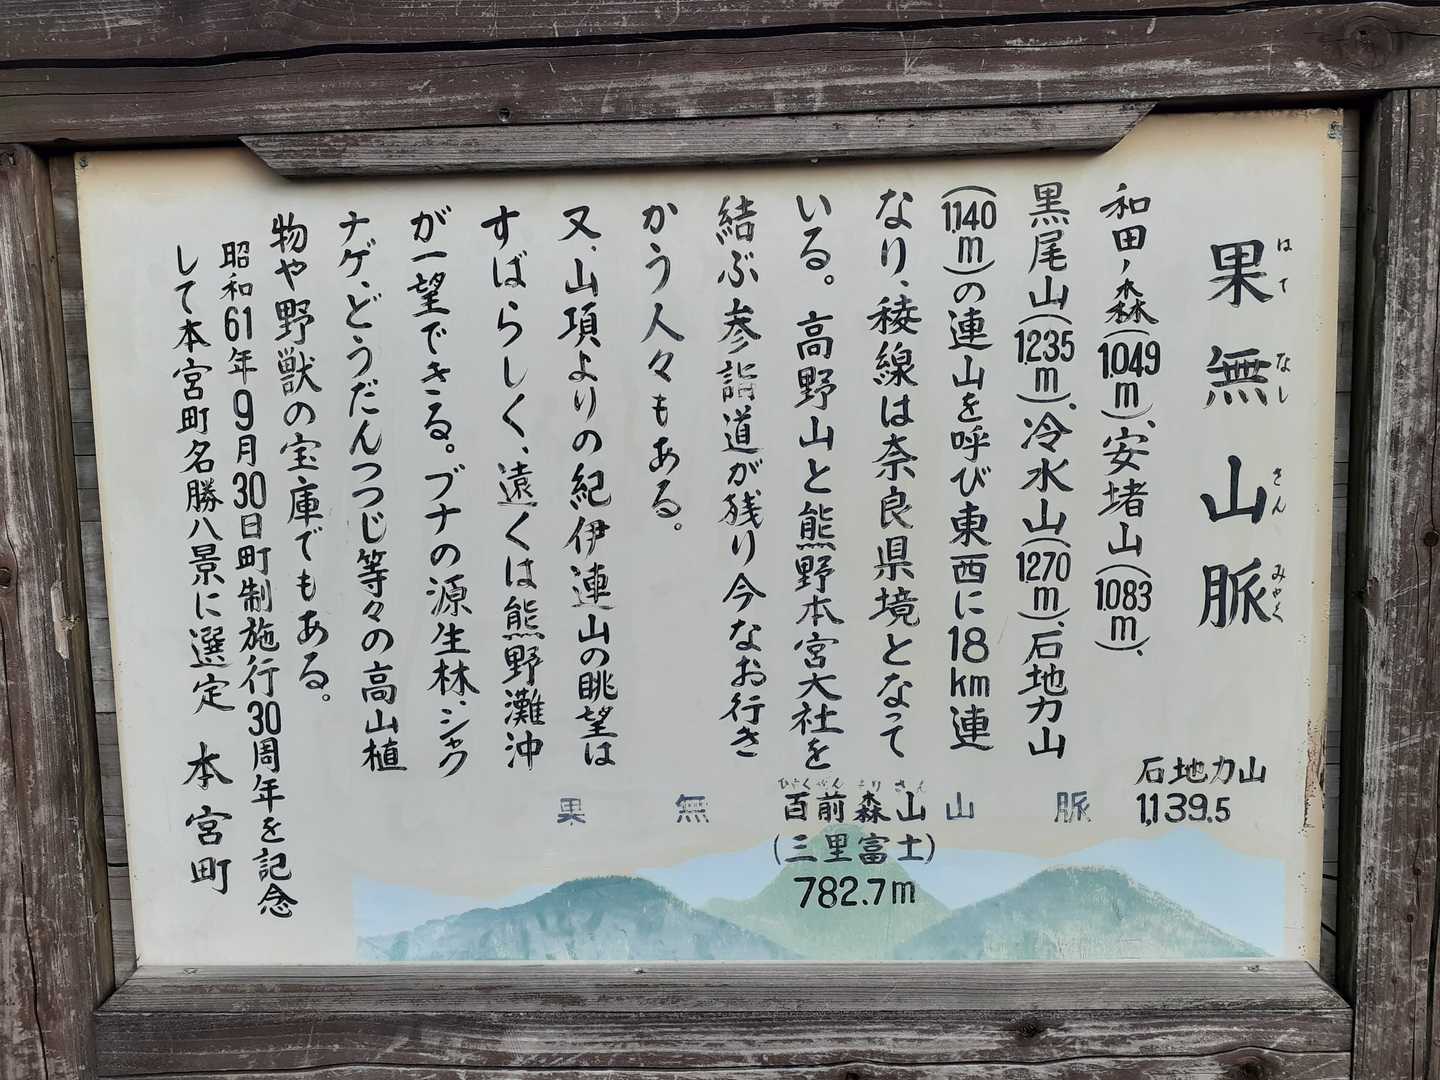 果無山脈
はてなしさんみゃく
和田ノ森(1,049m)、安堵山(1,083m)、
黒尾山(1,235m)、冷水山(1,270m)、石地力山
(1,140m)の連山を呼び東西に18km連
なり、稜線は奈良県境となって
いる。高野山と熊野本宮大社を
結ぶ参詣道が残り今なお行き
かう人々もある。
又、山項よりの紀伊連山の眺望は
すばらしく、遠くは熊野灘沖
が一望できる。ブナの源生林、シャク
ナゲ、どうだんつつじ等々の高山植
物や野獣の宝庫でもある。
昭和61年9月30日町制施行30周年を記念
して本宮町名勝八景に選定 本宮町
石地力山
1,139.5
果無山脈
ひゃくぜんもりさん
百前森山
(三里富士)
782.7m